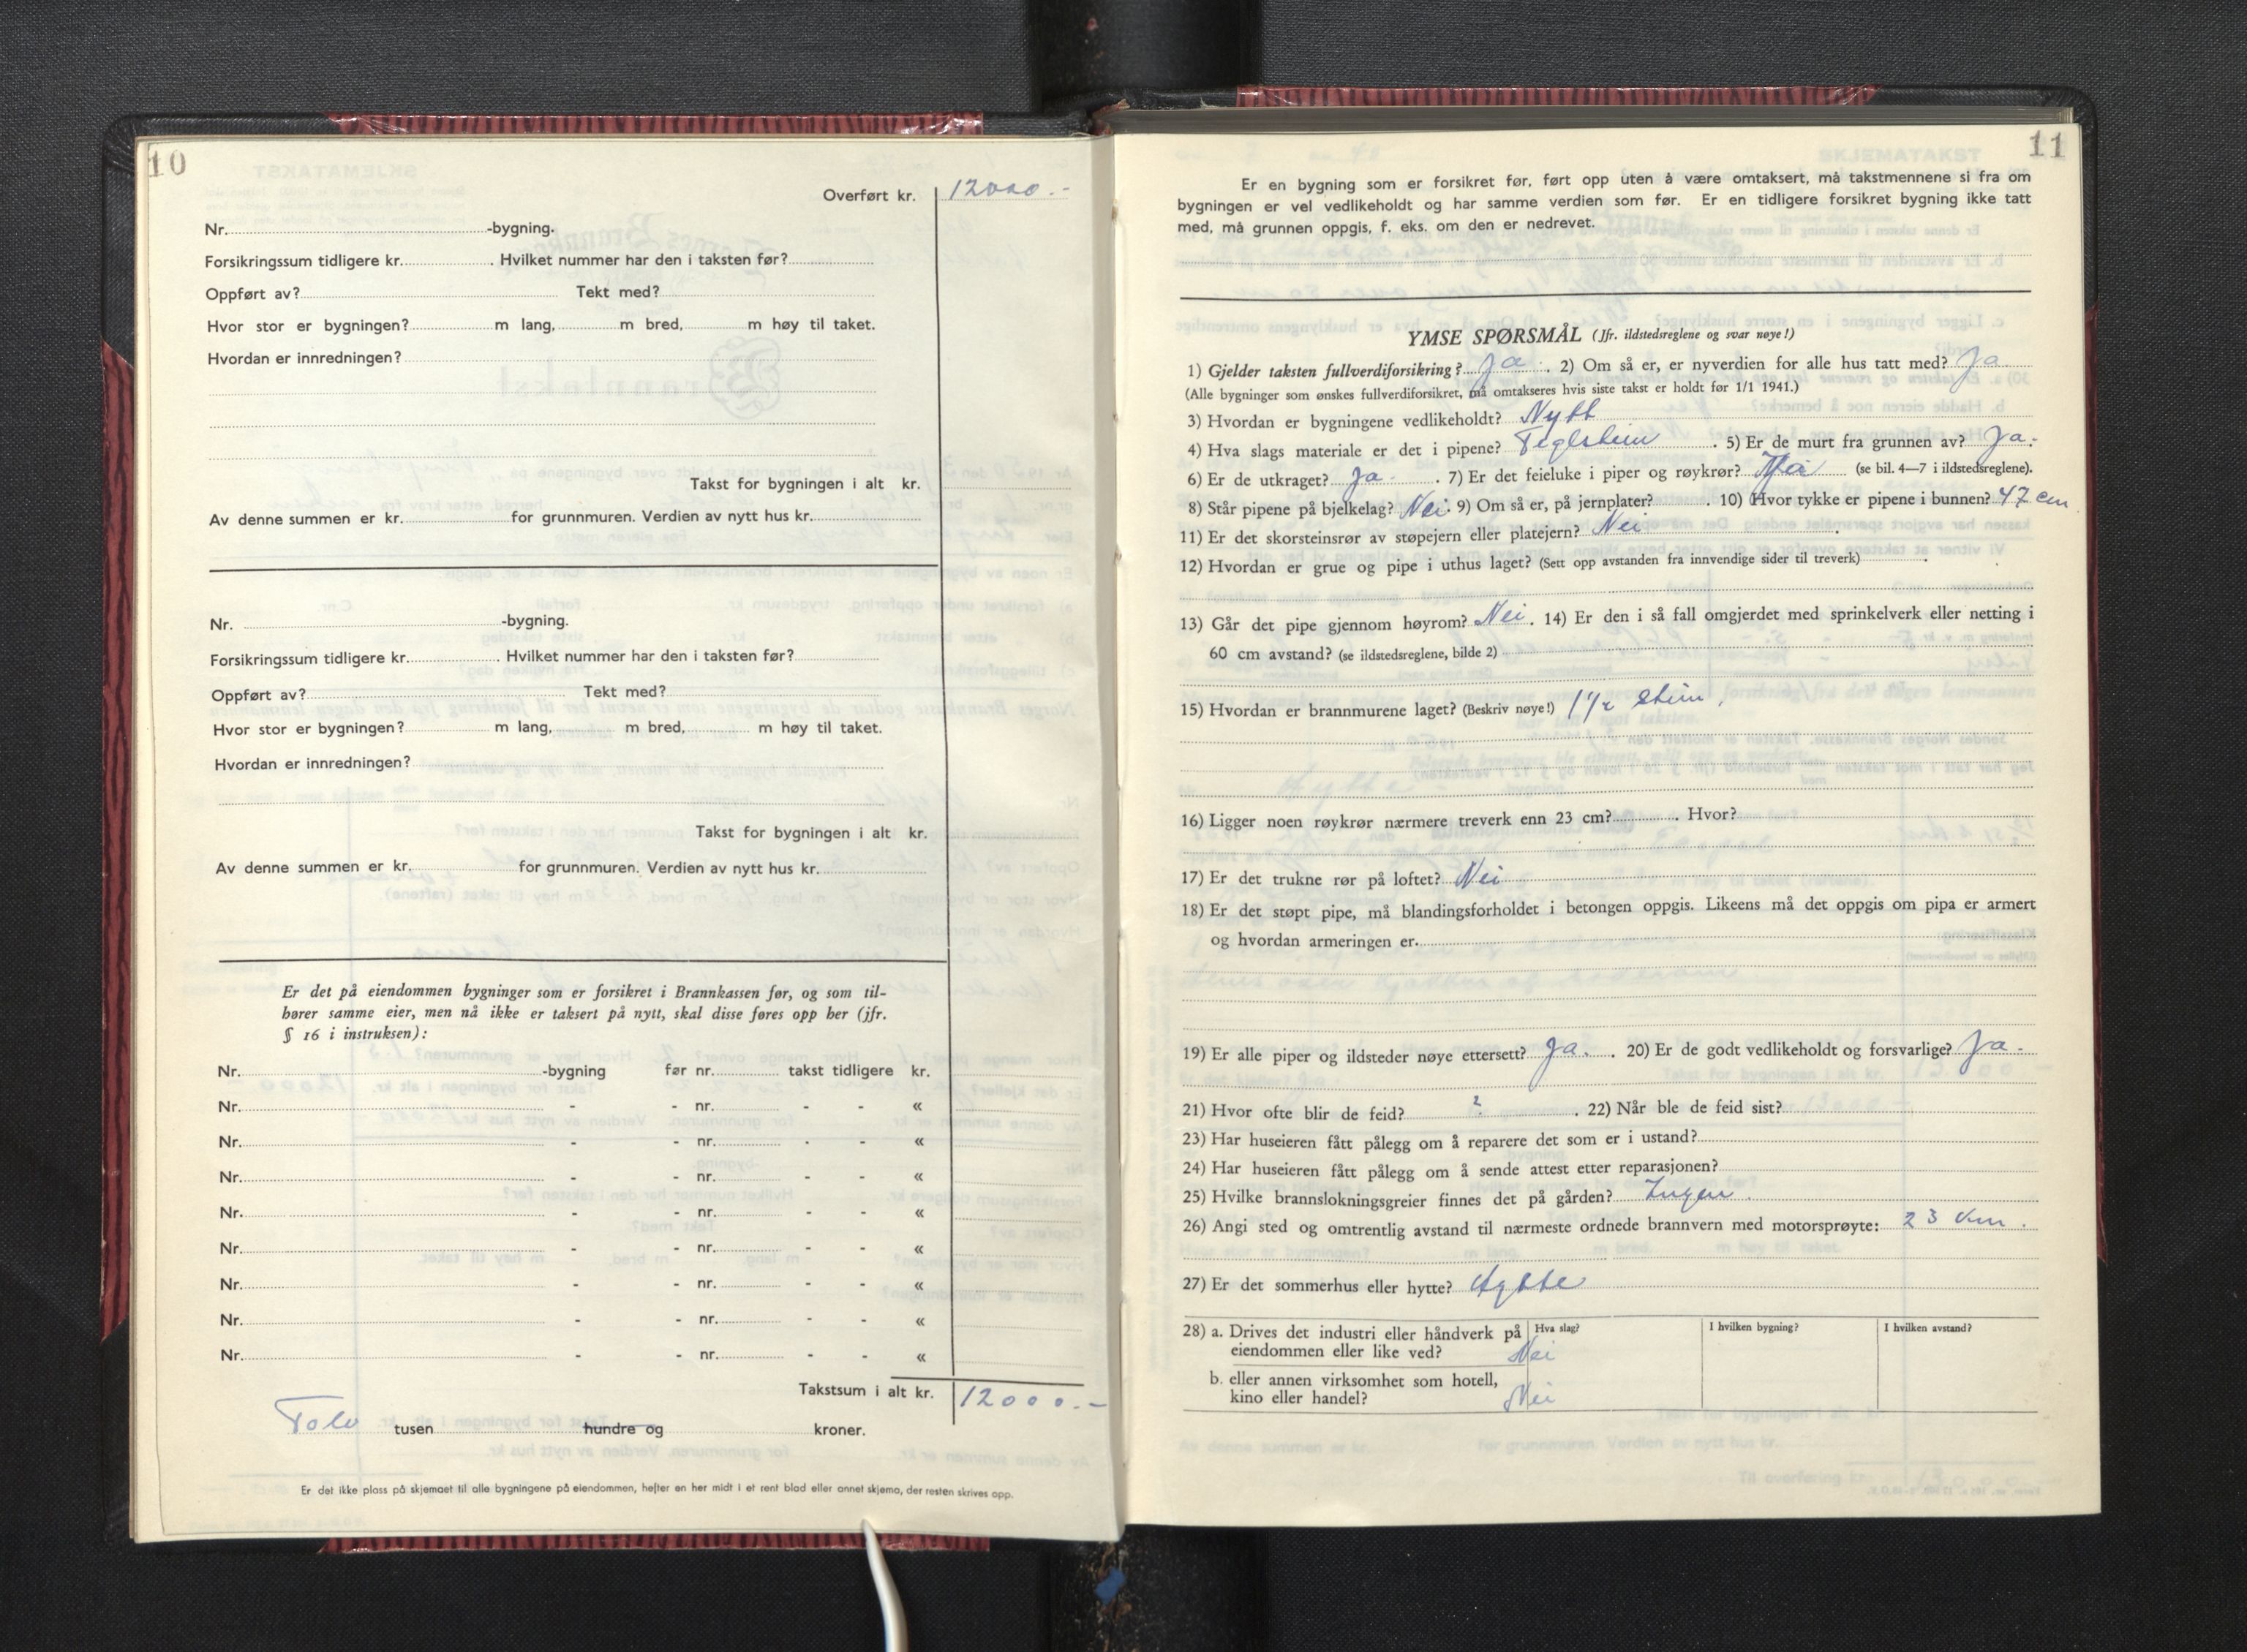 10
Overført kr. 12000.-
Nr. -bygning.
Forsikringssum tidligere kr. . Hvilket nummer har den i taksten før?
Oppført av? Tekt med?
Hvor stor er bygningen? m lang, m bred, m høy til taket.
Hvordan er innredningen?
Takst for bygningen i alt kr.
Av denne summen er kr. for grunnmuren. Verdien av nytt hus kr.
Nr. -bygning.
Forsikringssum tidligere kr. . Hvilket nummer har den i taksten før?
Oppført av? Tekt med?
Hvor stor er bygningen? m lang, m bred, m høy til taket.
Hvordan er innredningen?
Takst for bygningen i alt kr.
Av denne summen er kr. for grunnmuren. Verdien av nytt hus kr.
Er det på eiendommen bygninger som er forsikret i Brannkassen før, og som til-
hører samme eier, men nå ikke er taksert på nytt, skal disse føres opp her (jfr.
§ 16 i instruksen):
Nr. -bygning før nr. takst tidligere kr.
Nr. - - nr. - - «
Nr. - - nr. - - «
Nr. - - nr. - - «
Nr. - - nr. - - «
Nr. - - nr. - - «
Nr. - - nr. - - «
Nr. - - nr. - - «
Nr. - - nr. - - «
Takstsum i alt kr. 12000.-
Tolv tusen hundre og kroner.
Er det ikke plass på skjemaet til alle bygningene på eiendommen, hefter en her midt i et rent blad eller annet skjema, der resten skrives opp.
11
Er en bygning som er forsikret før, ført opp uten å være omtaksert, må takstmennene si fra om
bygningen er vel vedlikeholdt og har samme verdien som før. Er en tidligere forsikret bygning ikke tatt
med, må grunnen oppgis, f. eks. om den er nedrevet.
YMSE SPØRSMÅL (Jfr. ildstedsreglene og svar nøye!)
1) Gjelder taksten fullverdiforsikring? Ja. 2) Om så er, er nyverdien for alle hus tatt med? Ja
(Alle bygninger som ønskes fullverdiforsikret, må omtakseres hvis siste takst er holdt før 1/1 1941.)
3) Hvordan er bygningene vedlikeholdt? Nytt
4) Hva slags materiale er det i pipene? Teglstein. 5) Er de murt fra grunnen av? Ja.
6) Er de utkraget? Ja. 7) Er det feieluke i piper og røykrør? (se bil. 4—7 i ildstedsreglene).
8) Står pipene på bjelkelag? Nei. 9) Om så er, på jernplater? . 10) Hvor tykke er pipene i bunnen? 47 cm
11) Er det skorsteinsrør av støpejern eller platejern? Nei.
12) Hvordan er grue og pipe i uthus laget? (Sett opp avstanden fra innvendige sider til treverk) .
13) Går det pipe gjennom høyrom? Nei. 14) Er den i så fall omgjerdet med sprinkelverk eller netting i
60 cm avstand? (se ildstedsreglene, bilde 2)
15) Hvordan er brannmurene laget? (Beskriv nøye!) 1 1/2 stein.
16) Ligger noen røykrør nærmere treverk enn 23 cm? . Hvor?
17) Er det trukne rør på loftet? Nei
18) Er det støpt pipe, må blandingsforholdet i betongen oppgis. Likeens må det oppgis om pipa er armert
og hvordan armeringen er.
19) Er alle piper og ildsteder nøye ettersett? Ja. 20) Er de godt vedlikeholdt og forsvarlige? Ja.
21) Hvor ofte blir de feid? ? . 22) Når ble de feid sist?
23) Har huseieren fått pålegg om å reparere det som er i ustand?
24) Har huseieren fått pålegg om å sende attest etter reparasjonen?
25) Hvilke brannslokningsgreier finnes det på gården? Ingen.
26) Angi sted og omtrentlig avstand til nærmeste ordnede brannvern med motorsprøyte: 23 km.
27) Er det sommerhus eller hytte? Hytte
28) a. Drives det industri eller håndverk på Hva slag? I hvilken bygning? I hvilken avstand?
eiendommen eller like ved? Nei
b. eller annen virksomhet som hotell,
kino eller handel? Nei